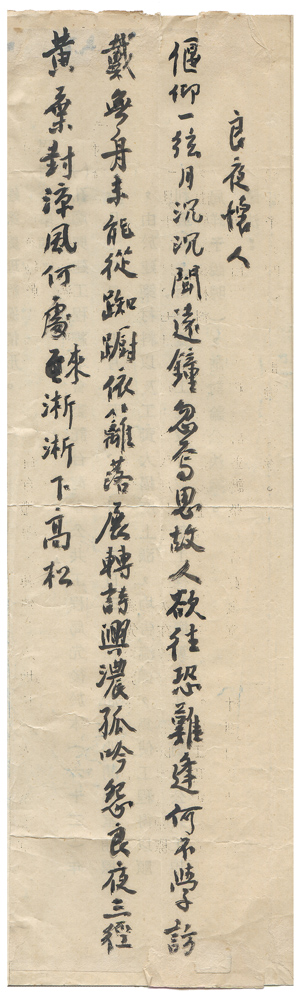 良夜懷人
偃仰一弦月沉沉聞遠鐘忽焉思故人欲往恐難逢何不學訪
戴無舟未能從踟躕依籬落展轉詩興濃孤吟怨良夜三徑
黃葉封涼風何處來淅淅下高松